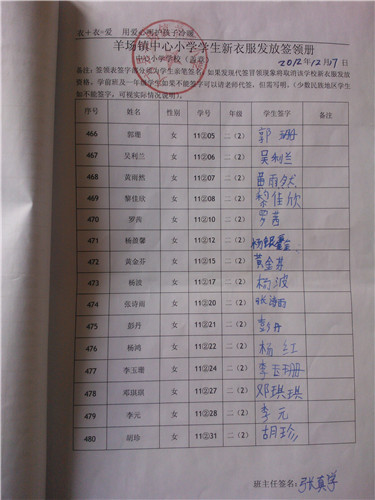 衣+衣=爱 用爱心呵护孩子冷暖
羊场镇中心小学学生新衣服发放签领册
学校(盖章) 2012年12月17日
备注:签领表签字部分须为学生亲笔签名;如发现代签冒领现象将取消该学校新衣服发放
资格。学前班及一年级学生如果不能签字可以请老师代签,但需写明。(少数民族地区学生
如不能签字,可视实际情况说明)。
序号 姓名 性别 学号 年级 学生签字 备注
466 郭珊 女 11②05 二(2) 郭珊
467 吴利兰 女 11②06 二(2) 吴利兰
468 黄雨然 女 11②07 二(2) 黄雨然
469 黎佳欣 女 11②08 二(2) 黎佳欣
470 罗茜 女 11②10 二(2) 罗茜
471 杨盈馨 女 11②12 二(2)
472 黄金芬 女 11②15 二(2) 黄金芬
473 杨波 女 11②17 二(2) 杨波
474 张诗雨 女 11②20 二(2) 张诗雨
475 彭丹 女 11②21 二(2) 彭丹
476 杨鸿 女 11②22 二(2) 杨红
477 李玉珊 女 11②24 二(2) 李玉珊
478 邓琪琪 女 11②27 二(2) 邓琪琪
479 李元 女 11②28 二(2) 李元
480 胡珍 女 11②31 二(2) 胡珍
班主任签名:张真学